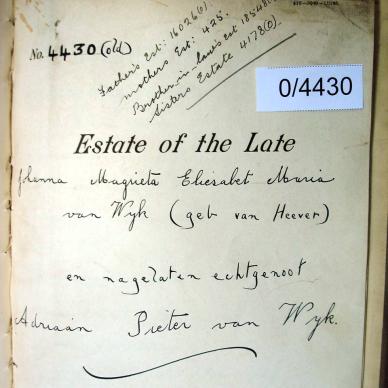 No. 4430 (old)
Father's Est: 16026(0).
mothers Est: 425.
Brother-in-law's est 18548(0)
Sisters Estate 4178(0).
0/4430
Estate of the Late
Johanna Magrieta Eliesabet Maria
van Wyk (geb van Heever)
en nagelaten echtgenoot
Adriaan Pieter van Wyk.